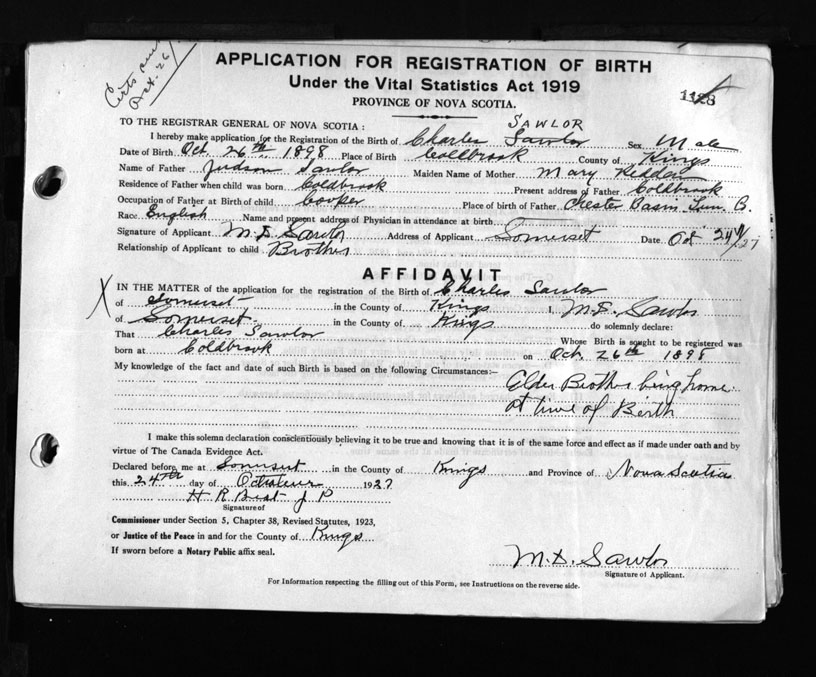 Certs sent
Oct. 26/
APPLICATION FOR REGISTRATION OF BIRTH
Under the Vital Statistics Act 1919
PROVINCE OF NOVA SCOTIA.
1128
TO THE REGISTRAR GENERAL OF NOVA SCOTIA:
SAWLOR
I hereby make application for the Registration of the Birth of Charles Sawlor Sex Male
Date of Birth Oct. 26th, 1898 Place of Birth Coldbrook County of Kings
Name of Father Judson Sawlor Maiden Name of Mother Mary Redden
Residence of Father when child was born Coldbrook Present address of Father Coldbrook
Occupation of Father at Birth of child Cooper Place of birth of Father Chester Basin Lun. C.
Race English Name and present address of Physician in attendance at birth
Signature of Applicant M. D. Sawlor Address of Applicant Somerset Date Oct 24/27
Relationship of Applicant to child Brother
AFFIDAVIT
X IN THE MATTER of the application for the registration of the Birth of Charles Sawlor
of Somerset in the County of Kings I, M. D. Sawlor
of Somerset in the County of Kings do solemnly declare:
That Charles Sawlor Whose Birth is sought to be registered was
born at Coldbrook on Oct. 26th 1898
My knowledge of the fact and date of such Birth is based on the following Circumstances:—
Elder Brother being home
at time of Birth
I make this solemn declaration conscientiously believing it to be true and knowing that it is of the same force and effect as if made under oath and by
virtue of The Canada Evidence Act.
Declared before me at Somerset in the County of Kings and Province of Nova Scotia
this 24th day of October 1927
H R Best J P
Signature of
Commissioner under Section 5, Chapter 38, Revised Statutes, 1923,
or Justice of the Peace in and for the County of Kings
If sworn before a Notary Public affix seal.
M. D. Sawlor
Signature of Applicant.
For Information respecting the filling out of this Form, see Instructions on the reverse side.